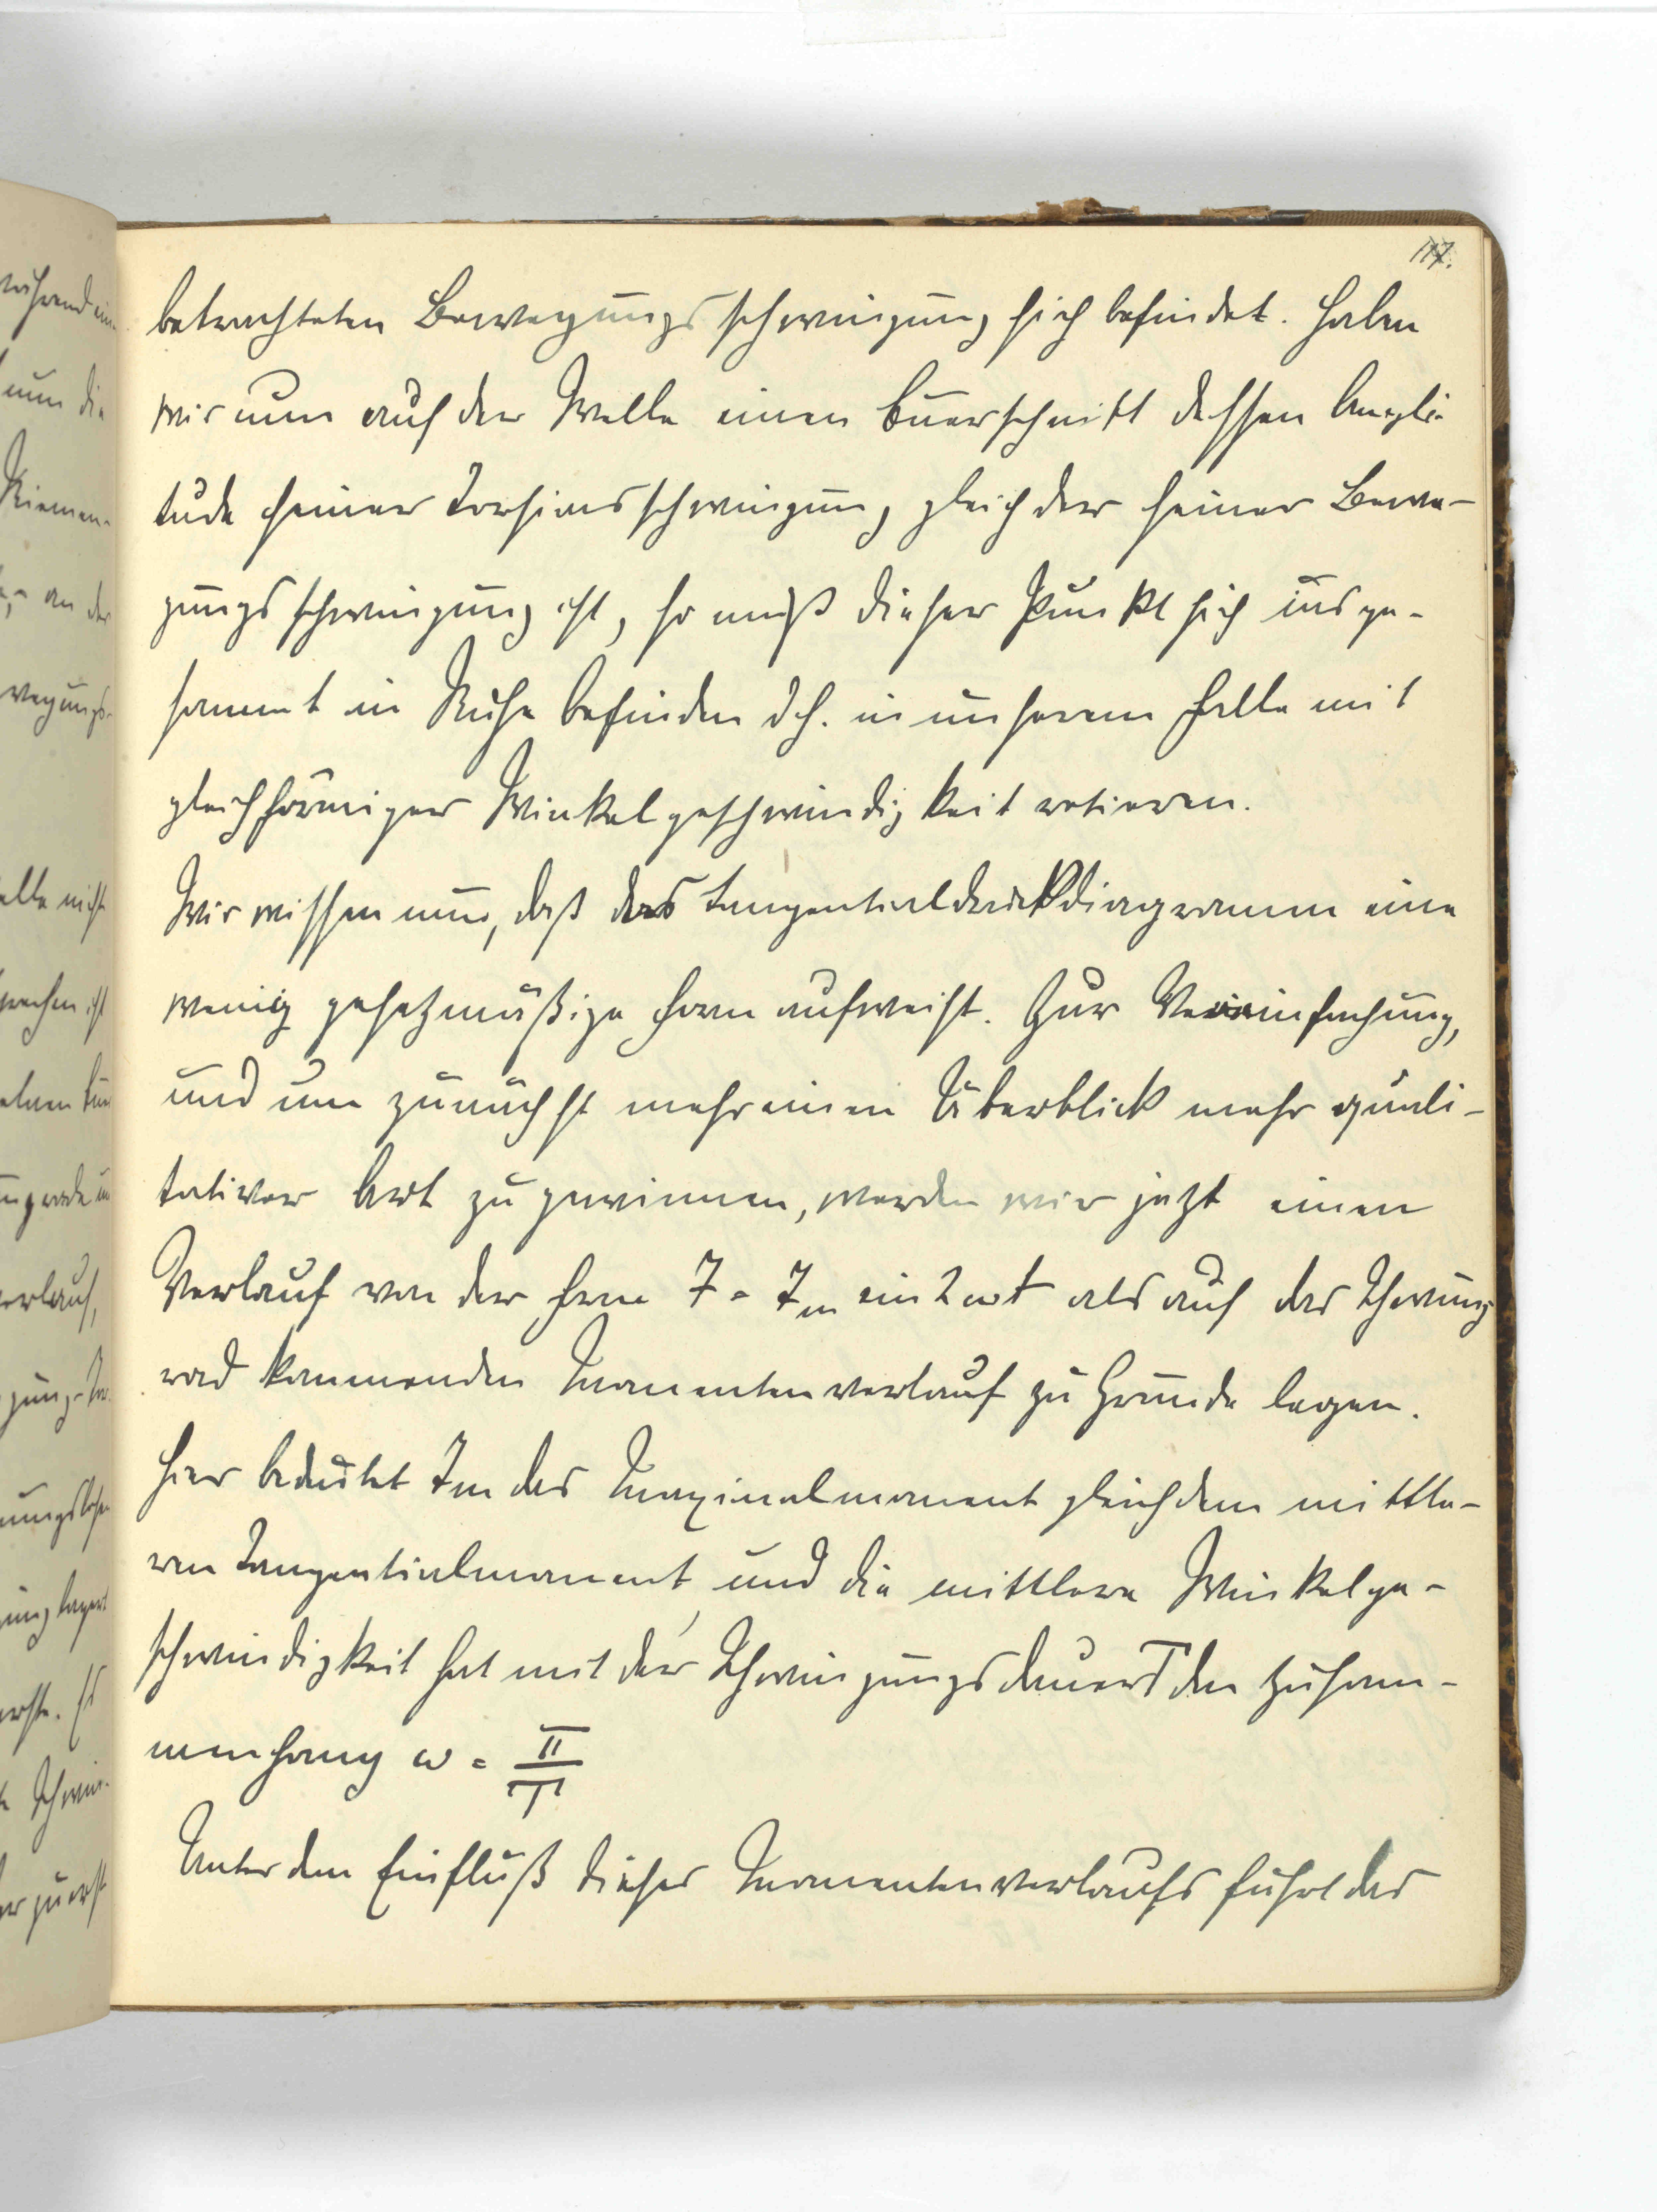 117.
betrachteten Bewegungsschwingung sich befindet. Haben
wir nun auf der Welle einen Querschnitt dessen Ampli-
tude seiner Torsionsschwingung gleich der seiner Bewe-
gungsschwingung ist, so muß dieser Punkt sich insge-
sammt in Ruhe befinden d.h. in unserem Falle mit
gleichförmiger Winkelgeschwindigkeit rotieren.
Wir wissen nun, daß das Tangentialdruckdiagramm eine
wenig gesetzmäßige Form aufweist. Zur Vereinfachung,
und um zunächst mehr einen Überblick mehr quali-
tativer Art zu gewinnen, werden wir jetzt einen
Verlauf von der Form T = Tm sin 2 ωt als auf das Schwung
rad kommenden Momentenverlauf zu Grunde legen.
Hier bedeutet Tm das Maximalmoment gleich dem mittle-
ren Tangentialmoment, und die mittlere Winkelge-
schwindigkeit hat mit der Schwingungsdauer T den Zusam-
menhang ω = π/T
Unter dem Einfluß dieses Momentenverlaufs führt das